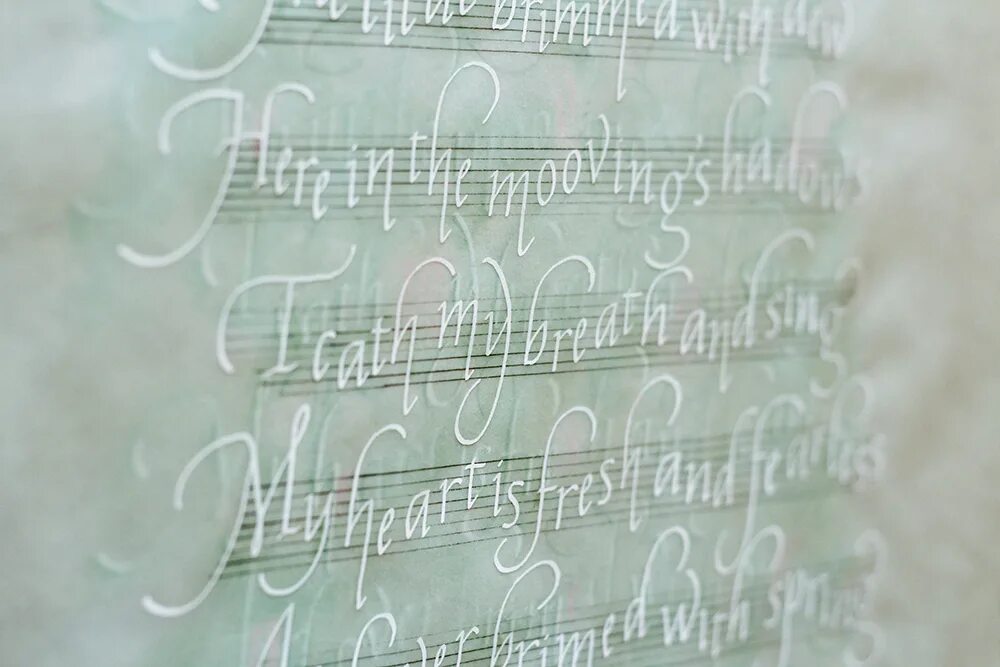 brimmed with
Here in the mooving shadows
I cath my breath and sing
My heart is fresh and fearless
over brimmed with spring